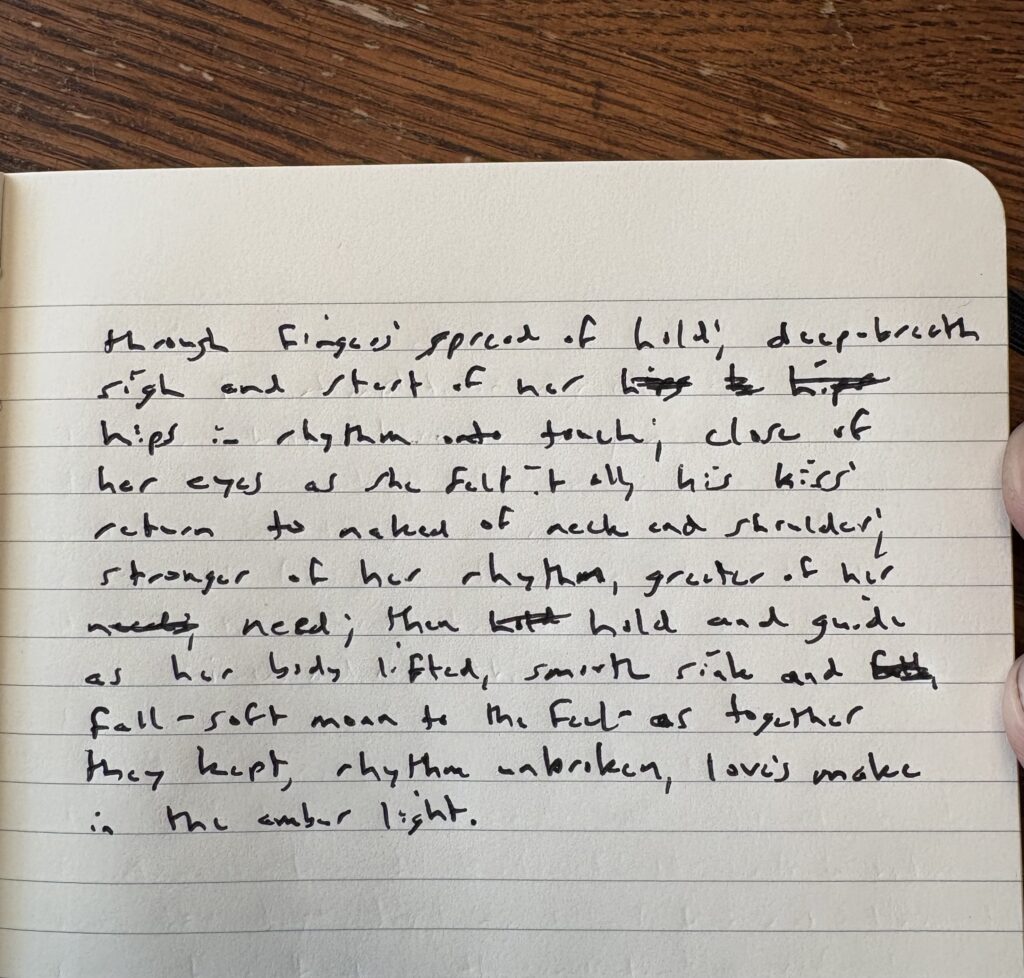 through fingers' spread of hold; deep-breath
sigh and start of her
hips in rhythm onto touch; close of
her eyes as she felt it all, his kiss'
return to naked of neck and shoulder;
stronger of her rhythm, greater of her
need; then hold and guide
as her body lifted, smooth sink and
fall - soft moan to the feel - as together
they kept, rhythm unbroken, love's make
in the amber light.